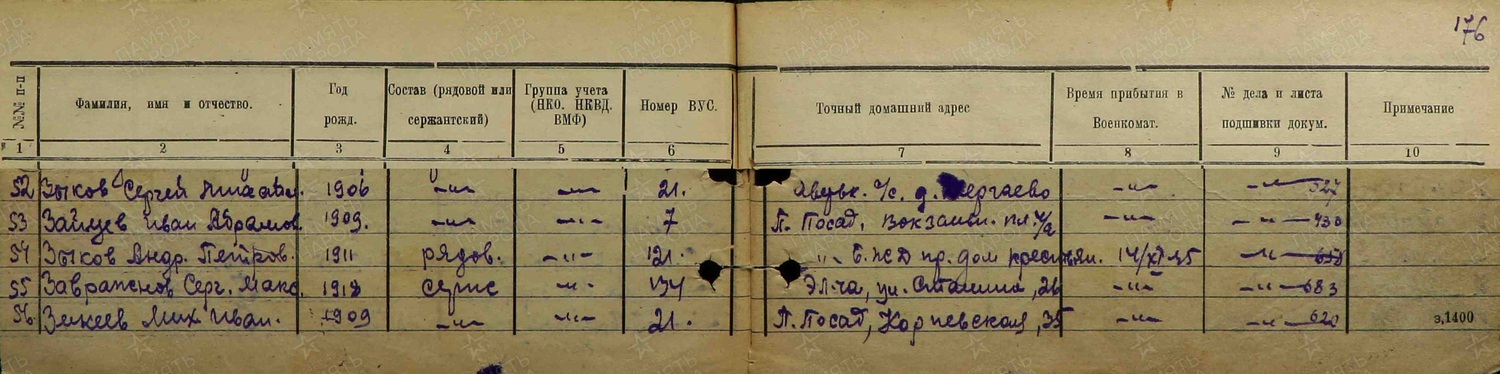 176
№№ п-п | Фамилия, имя и отчество. | Год рожд. | Состав (рядовой или сержантский) | Группа учета (НКО. НКВД. ВМФ) | Номер ВУС. | Точный домашний адрес | Время прибытия в Военкомат. | № дела и листа подшивки докум. | Примечание
1 | 2 | 3 | 4 | 5 | 6 | 7 | 8 | 9 | 10
52 | Зыков Сергей | 1906 | -"- | -"- | 21. | с/с. д. | -"- | -"- 527
53 | Зайцев Иван Абрамов. | 1909. | -"- | -"- | 7 | П. Посад, Вокзальн. пл 4/2 | -"- | -"- 430
54 | Зыков Андр. Петров. | 1911 | рядов. | -"- | 121. | -"- пр. дом крестьян. | 14/XI 45 | -"-
55 | Серг. Макс. | 1918 | -"- | 134 | Эл-ча, ул. Сталина, 26 | -"- | -"- 683
56 | Зикеев Мих Иван. | 1909 | -"- | -"- | 21. | П. Посад, Карповская, 35 | -"- | -"- 620 | з,1400